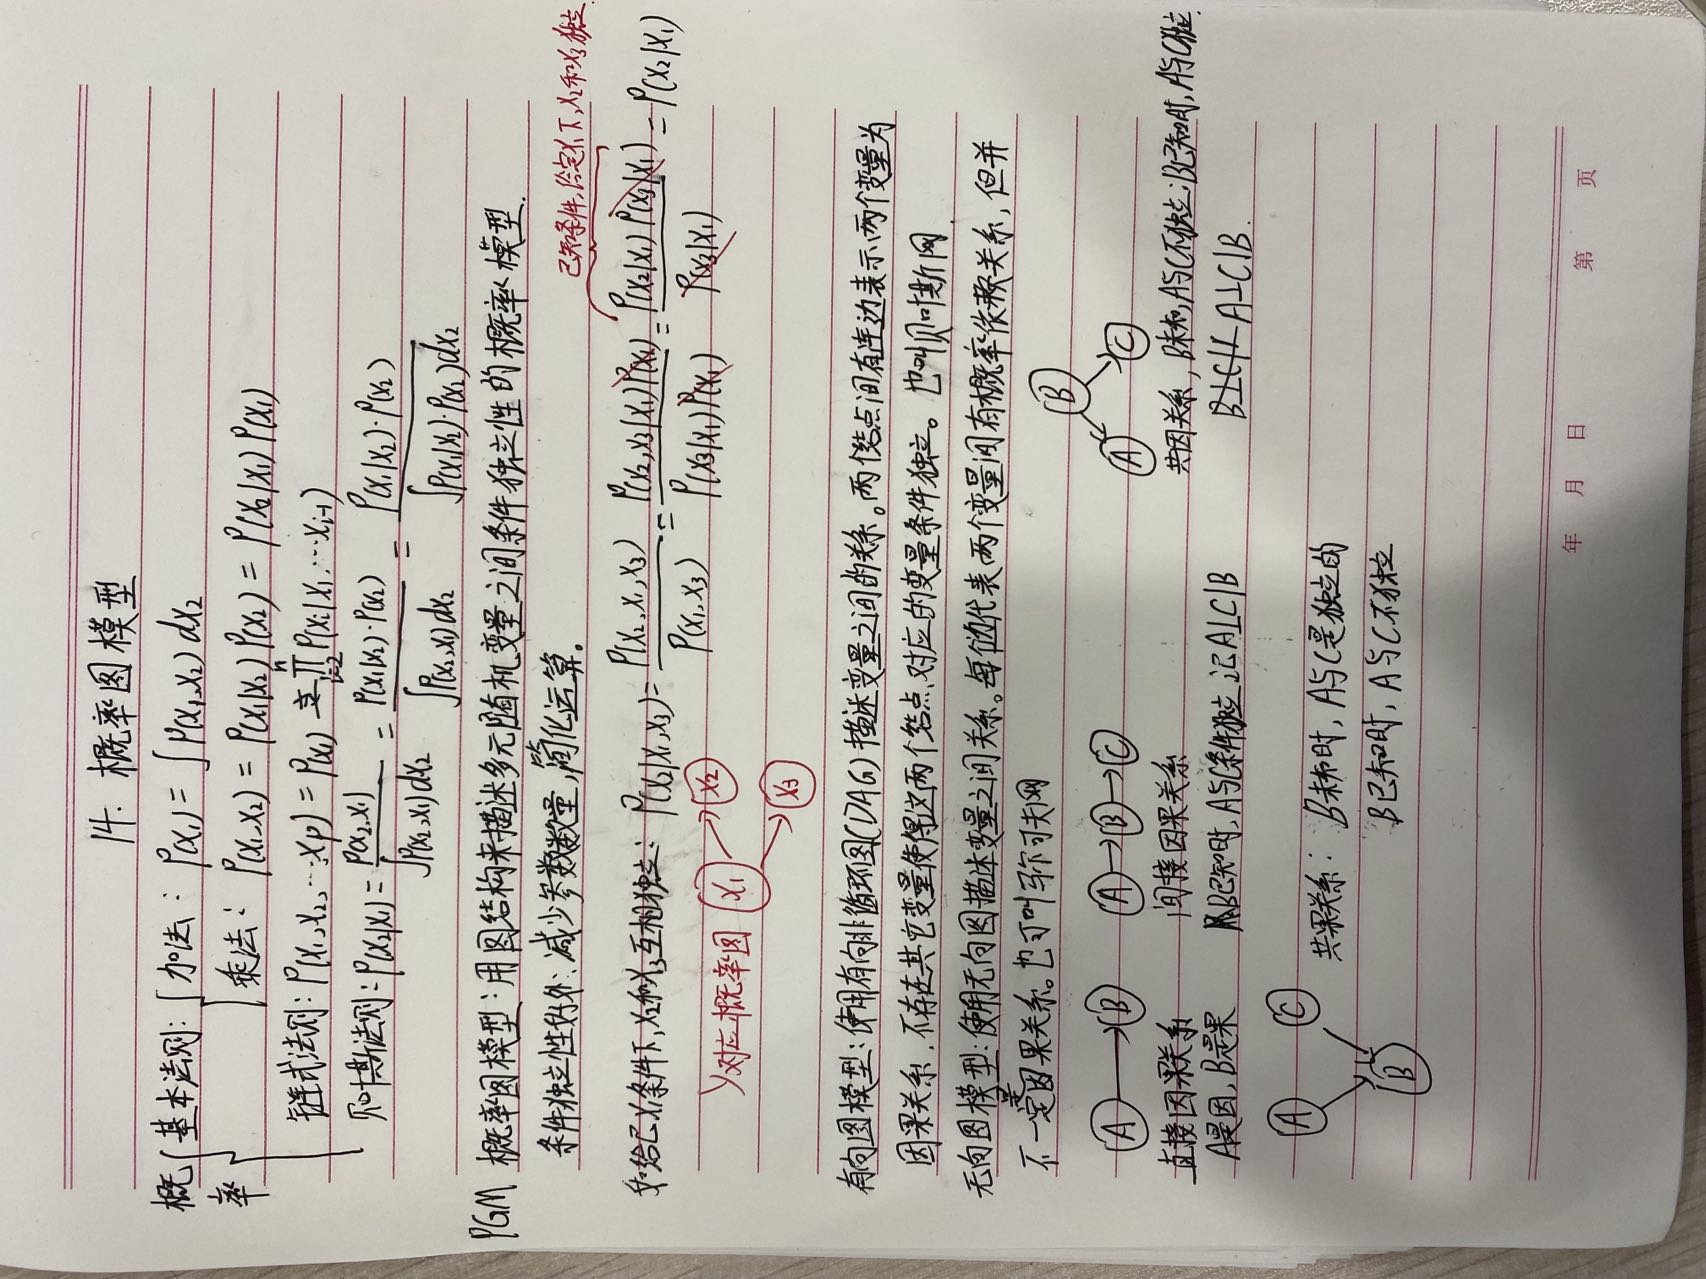 14. 概率图模型
概率 基本法则: 加法: P(x₁) = ∫ P(x₁,x₂) dx₂
乘法: P(x₁,x₂) = P(x₁|x₂) P(x₂) = P(x₂|x₁) P(x₁)
链式法则: P(x₁,x₂,…,xp) = P(x₁) ∏ⁿᵢ₌₂ P(xᵢ|x₁,…xᵢ₋₁)
贝叶斯法则: P(x₂|x₁) = P(x₂,x₁) / ∫P(x₂,x₁)dx₂ = P(x₁|x₂)·P(x₂) / ∫P(x₂,x₁)dx₂ = P(x₁|x₂)·P(x₂) / ∫P(x₁|x₂)·P(x₂)dx₂
PGM 概率图模型: 用图结构来描述多元随机变量之间条件独立性的概率模型.
条件独立性好处: 减少参数数量, 简化运算。
已知条件, 给定x₁下, x₂和x₃独立
如给已x₁条件下, x₂和x₃互相独立: P(x₂|x₁,x₃) = P(x₂,x₁,x₃) / P(x₁,x₃) = P(x₂,x₃|x₁)P(x₁) / P(x₃|x₁)P(x₁) = P(x₂|x₁) P(x₃|x₁) / P(x₃|x₁) = P(x₂|x₁)
对应概率图 x₁ x₂
x₃
有向图模型: 使用有向非循环图(DAG)描述变量之间的关系。两个结点间有连边表示两个变量为
因果关系, 不存在其它变量使得这两个结点对应的变量条件独立。也叫贝叶斯网
无向图模型: 使用无向图描述变量之间关系。每个边代表两个变量间有概率依赖关系, 但并
不一定是因果关系。也可叫马尔可夫网
B
A B A B C A C
直接因果关系 间接因果关系 共因关系, B未知, A与C不独立; B已知时, A与C独立
A是因, B是果 B已知时, A与C条件独立 记A⊥C|B A⊥C|B.
A C
共果关系: B未知时, A与C是独立的
B B已知时, A与C不独立
年 月 日 第 页